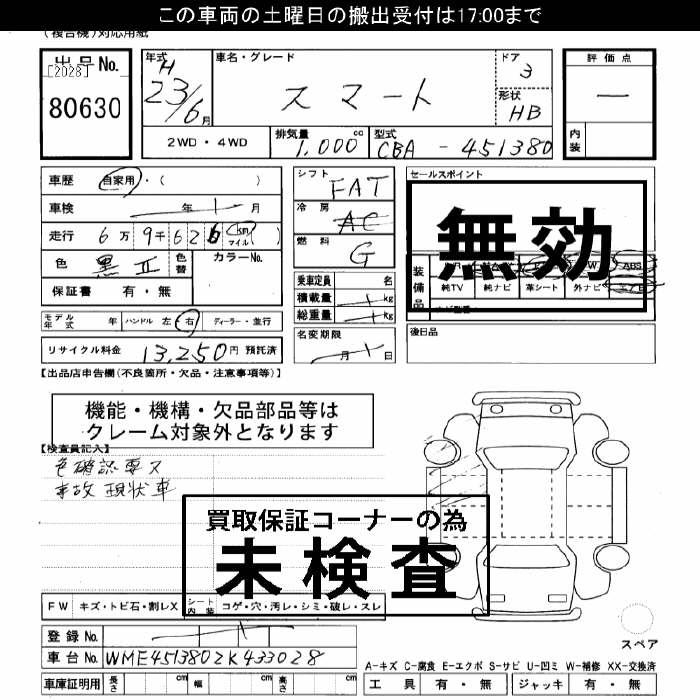 この車両の土曜日の搬出受付は17:00まで
(複合機)対応用紙
出品No. [2028] 80630
年式 H 23/6 月
車名・グレード スマート
ドア 3
形状 HB
評価点 —
内装
2WD・4WD
排気量 1,000 cc
型式 CBA - 451380
車歴 自家用・( )
車検 年 月
走行 6万9千626 km マイル ( )
色 黒II 色替 カラーNo.
保証書 有・無
モデル年式 年 ハンドル 左 右 ディーラー・並行
リサイクル料金 13,250円 預託済
シフト FAT
冷房 AC
燃料 G
乗車定員 名
積載量 kg
総重量 kg
名変期限 月 日
セールスポイント
無効
装備品 ABS
純TV 純ナビ 革シート 外ナビ
後日品
【出品店申告欄(不良箇所・欠品・注意事項等)】
機能・機構・欠品部品等は
クレーム対象外となります
【検査員記入】
色確認要ス
事故現状車
買取保証コーナーの為
未検査
FW キズ・トビ石・割レX シート内装 コゲ・穴・汚レ・シミ・破レ・スレ
登録No.
車台No. WME4513802K433028
車庫証明用 長さ cm 幅 cm 高さ cm
スペア
A-キズ C-腐食 E-エクボ S-サビ U-凹ミ W-補修 XX-交換済
工具 有・無 ジャッキ 有・無